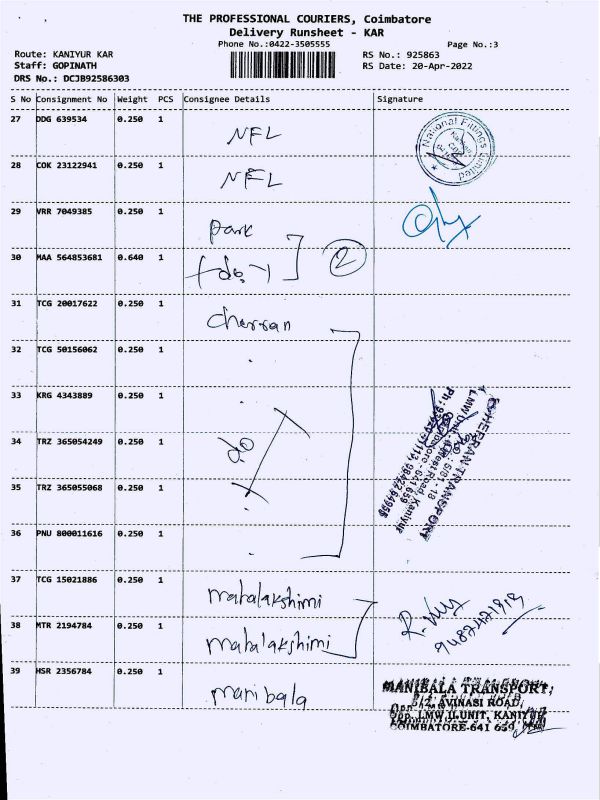 THE PROFESSIONAL COURIERS, Coimbatore
Delivery Runsheet - KAR
Phone No.:0422-3505555
Page No.:3
Route: KANIYUR KAR
RS No.: 925863
Staff: GOPINATH
RS Date: 20-Apr-2022
DRS No.: DCJB92586303
S No Consignment No Weight PCS Consignee Details Signature
27 DDG 639534 0.250 1 NFL
National Fittings Limited
28 COK 23122941 0.250 1 NFL
29 VRR 7049385 0.250 1 park
30 MAA 564853681 0.640 1
2
31 TCG 20017622 0.250 1 cherran
32 TCG 50156062 0.250 1
33 KRG 4343889 0.250 1
34 TRZ 365054249 0.250 1 do
35 TRZ 365055068 0.250 1
36 PNU 800011616 0.250 1
CHERRAN TRANSPORT
37 TCG 15021886 0.250 1 mahalakshimi
38 MTR 2194784 0.250 1 mahalakshimi
39 HSR 2356784 0.250 1 manibala
MANIBALA TRANSPORT,
5/2, AVINASI ROAD,
Opp. LMW II UNIT, KANIYUR
COIMBATORE-641 659